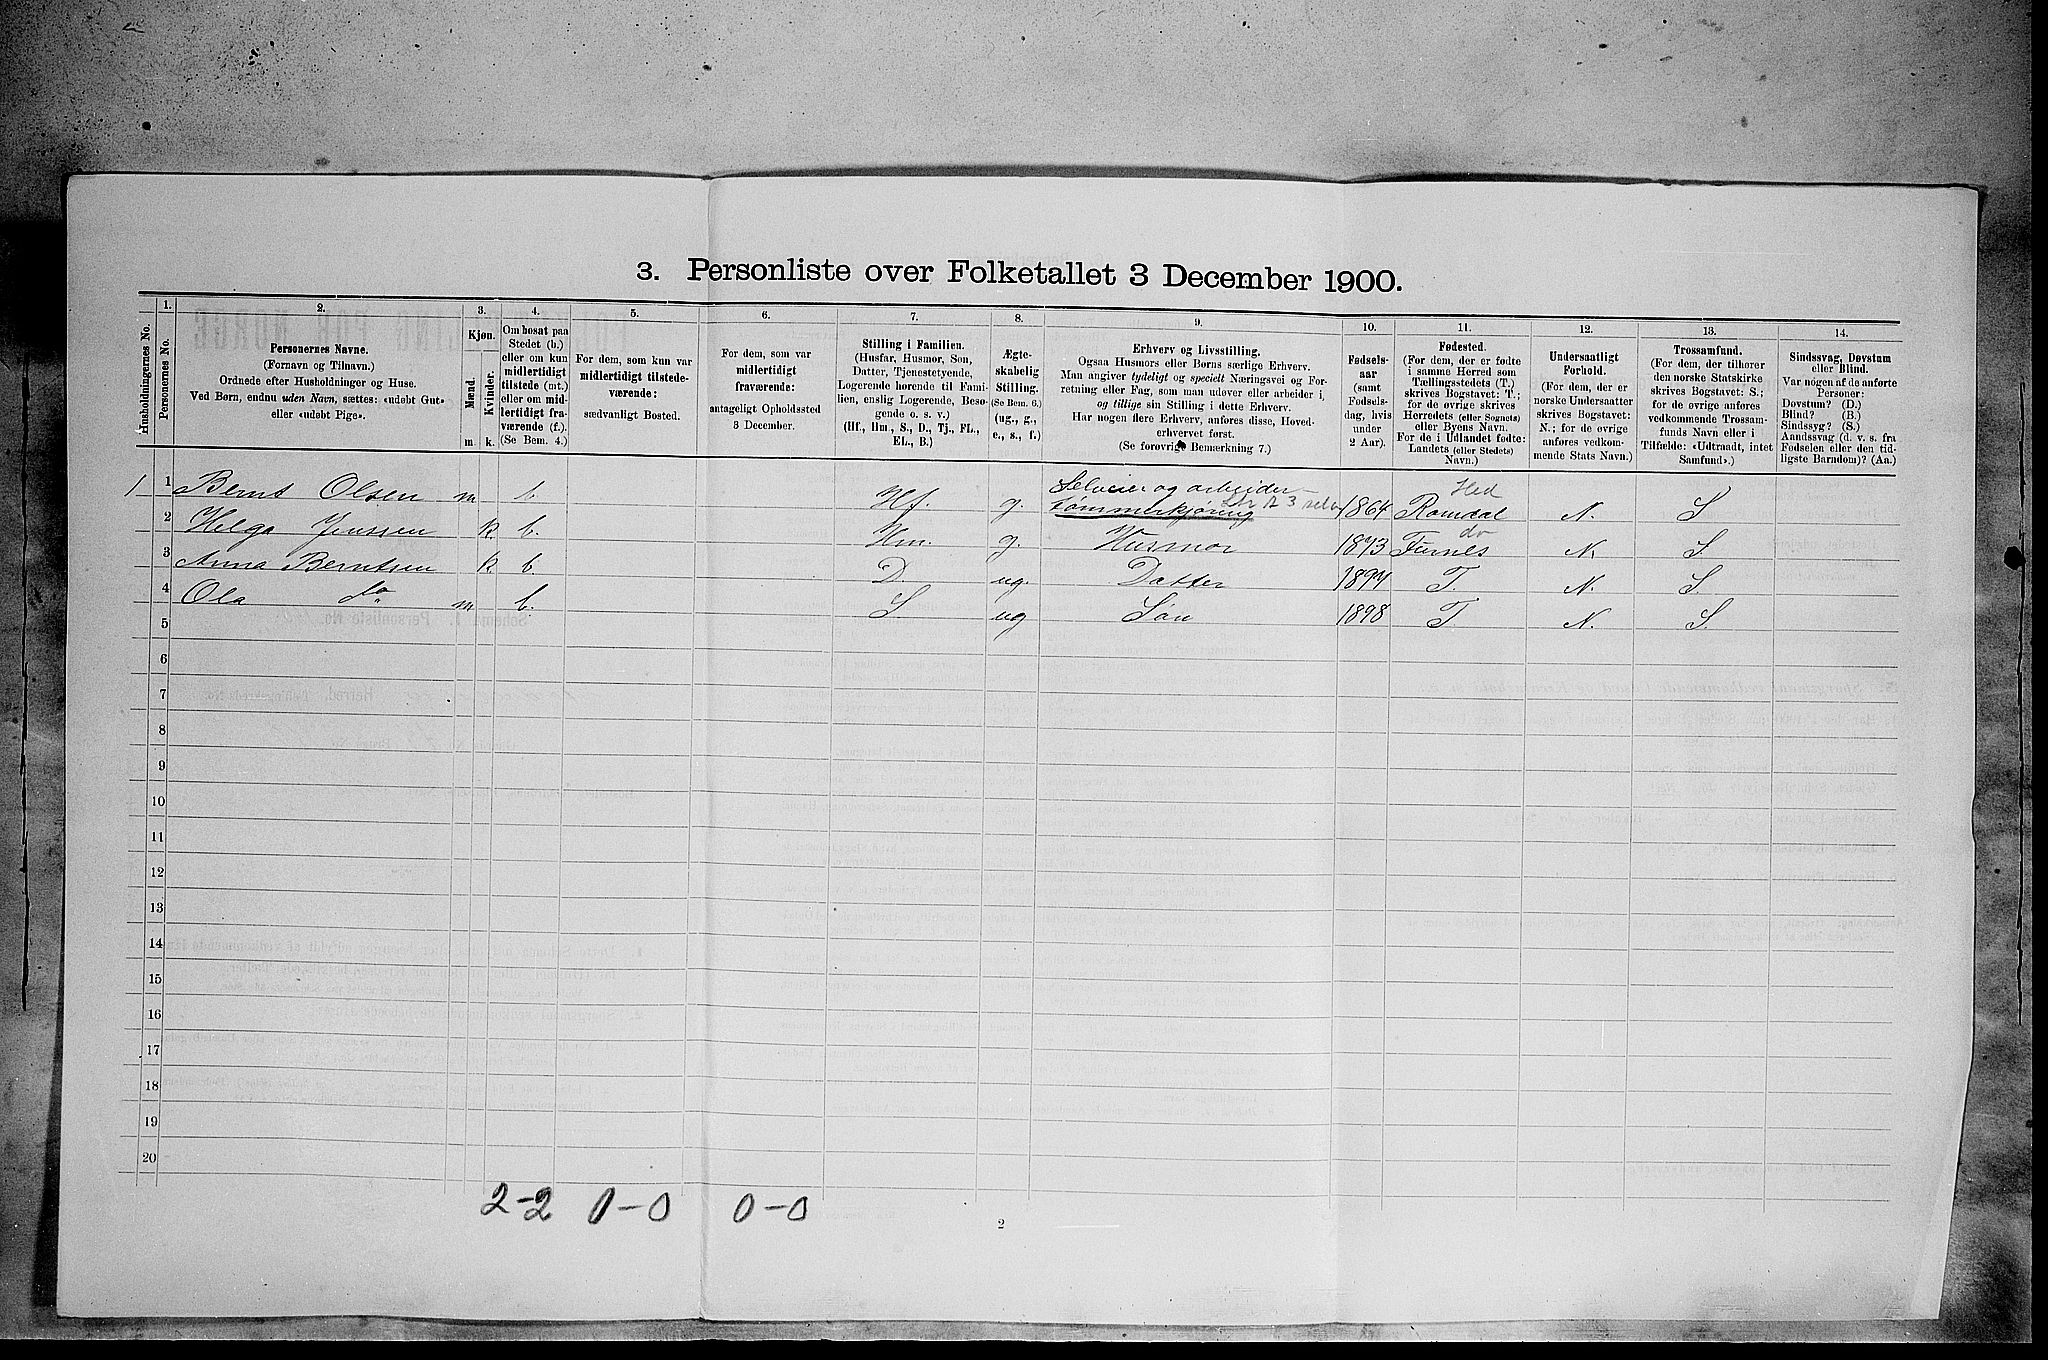 3. Personliste over Folketallet 3 December 1900.
Husholdningernes No.
1.
Personernes No.
2.
Personernes Navne.
(Fornavn og Tilnavn.)
Ordnede efter Husholdninger og Huse.
Ved Børn, endnu uden Navn, sættes: «udøbt Gut»
eller «udøbt Pige».
3.
Kjøn.
Mænd.
Kvinder.
m. k.
4.
Om bosat paa
Stedet (b.)
eller om kun
midlertidigt
tilstede (mt.)
eller om mid-
lertidigt fra-
værende (f.).
(Se Bem. 4.)
5.
For dem, som kun var
midlertidigt tilstede-
værende:
sædvanligt Bosted.
6.
For dem, som var
midlertidigt
fraværende:
antageligt Opholdssted
3 December.
7.
Stilling i Familien.
(Husfar, Husmor, Søn,
Datter, Tjenestetyende,
Logerende hørende til Fami-
lien, enslig Logerende, Besø-
gende o. s. v.)
(Hf., Hm., S., D., Tj., FL.,
EL., B.)
8.
Ægte-
skabelig
Stilling.
(Se Bem. 6.)
(ug., g.,
e., s., f.)
9.
Erhverv og Livsstilling.
Ogsaa Husmors eller Børns særlige Erhverv.
Man angiver tydeligt og specielt Næringsvei og For-
retning eller Fag, som man udøver eller arbeider i,
og tillige sin Stilling i dette Erhverv.
Har nogen flere Erhverv, anføres disse, Hoved-
erhvervet først.
(Se forøvrig Bemærkning 7.)
10.
Fødsels-
aar
(samt
Fødsels-
dag, hvis
under
2 Aar).
11.
Fødested.
(For dem, der er fødte
i samme Herred som
Tællingsstedets (T.)
skrives Bogstavet: T.;
for de øvrige skrives
Herredets (eller Sognets)
eller Byens Navn.
For de i Udlandet fødte:
Landets (eller Stedets)
Navn.)
12.
Undersaatligt
Forhold.
(For dem, der er
norske Undersaatter
skrives Bogstavet:
N.; for de øvrige
anføres vedkom-
mende Stats Navn.)
13.
Trossamfund.
(For dem, der tilhører
den norske Statskirke
skrives Bogstavet: S.;
for de øvrige anføres
vedkommende Trossam-
funds Navn eller i
Tilfælde: «Udtraadt, intet
Samfund».)
14.
Sindssvag, Døvstum
eller Blind.
Var nogen af de anførte
Personer:
Døvstum? (D.)
Blind? (B.)
Sindssyg? (S.)
Aandssvag (d. v. s. fra
Fødselen eller den tid-
ligste Barndom)? (Aa.)
1 1 Bernt Olsen m b. Hf. g. Selveier og arbeider tømmerkjøring 1864 Romdal Hed N. S
2 Helga Jenssen k. b. Hm. g. Husmor 1873 Furnes do N. S.
3 Anna Berntsen k b. D. ug. Datter 1894 T. N. S.
4 Ola do m b. S. ug Søn 1898 T N. S.
5
6
7
8
9
10
11
12
13
14
15
16
17
18
19
20
2-2 0-0 0-0
2